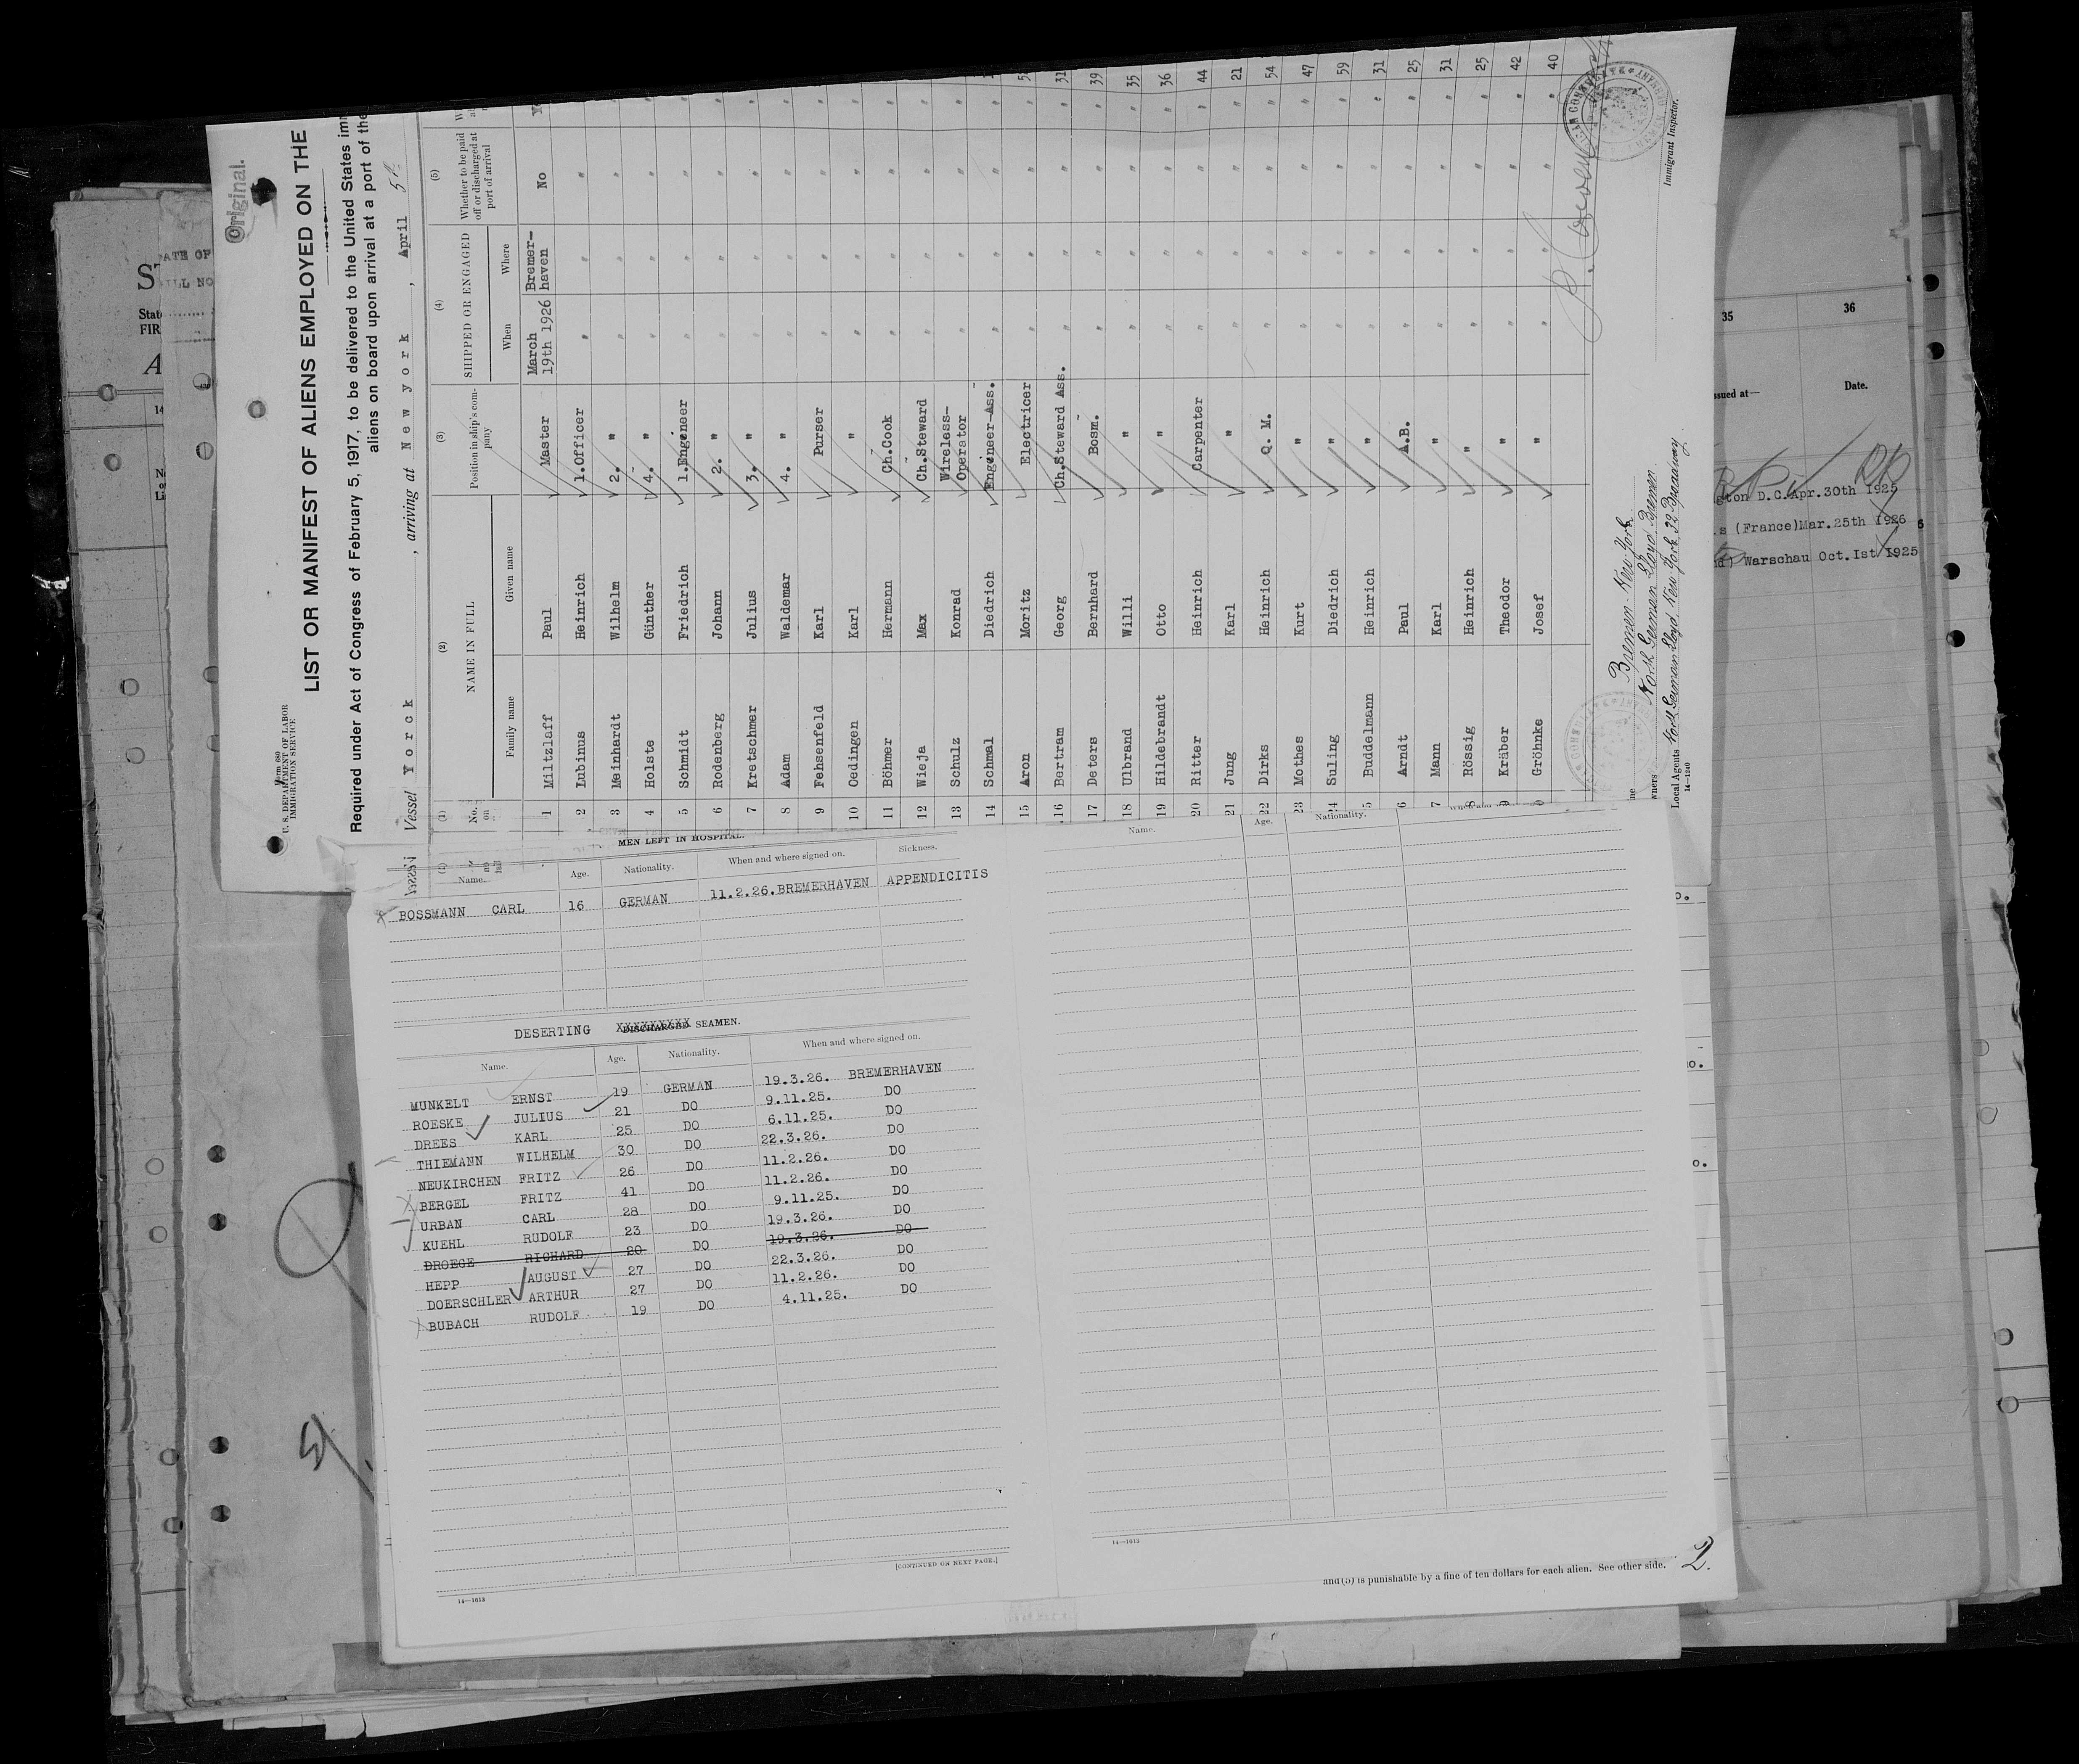 Original.
Form 680
U. S. DEPARTMENT OF LABOR
IMMIGRATION SERVICE
LIST OR MANIFEST OF ALIENS EMPLOYED ON THE
Required under Act of Congress of February 5, 1917, to be delivered to the United States
aliens on board upon arrival at a port of the
Vessel Yorck , arriving at New york , April 5th
(1) (2) (3) (4) (5)
No. NAME IN FULL Position in ship's company SHIPPED OR ENGAGED Whether to be paid off or discharged at port of arrival
Family name Given name When Where
1 Miltzlaff Paul Master March 19th 1926 Bremerhaven No
2 Lubinus Heinrich 1.Officer " " " "
3 Meinhardt Wilhelm 2. " " " " "
4 Holste Günther 4. " " " " "
5 Schmidt Friedrich 1.Engeneer " " " "
6 Rodenberg Johann 2. " " " " "
7 Kretschmer Julius 3. " " " " "
8 Adam Waldemar 4. " " " " "
9 Fehsenfeld Karl Purser " " " "
10 Oedingen Karl " " " " "
11 Böhmer Hermann Ch.Cook " " " "
12 Wieja Max Ch.Steward " " " "
13 Schulz Konrad Wireless-Operator " " " "
14 Schmal Diedrich Engeneer-Ass. " " " "
15 Aron Moritz Electricer " " " "
16 Bertram Georg Ch.Steward Ass. " " " " 31
17 Deters Bernhard Bosm. " " " " 39
18 Ulbrand Willi " " " " " 35
19 Hildebrandt Otto " " " " " 36
20 Ritter Heinrich Carpenter " " " " 44
21 Jung Karl " " " " " 21
22 Dirks Heinrich Q. M. " " " " 54
23 Mothes Kurt " " " " " 47
24 Suling Diedrich " " " " " 59
5 Buddelmann Heinrich " " " " " 31
6 Arndt Paul A.B. " " " " 25
7 Mann Karl " " " " " 31
8 Rössig Heinrich " " " " " 25
9 Kräber Theodor " " " " " 42
0 Gröhnke Josef " " " " " 40
Bremen-New-York
North German Lloyd Bremen
Local Agents North German Lloyd, New York, 32 Broadway
14-1240
Immigrant Inspector.
MEN LEFT IN HOSPITAL.
Name. Age. Nationality. When and where signed on. Sickness.
BOSSMANN CARL 16 GERMAN 11.2.26.BREMERHAVEN APPENDICITIS
DESERTING DISCHARGED SEAMEN.
Name. Age. Nationality. When and where signed on.
MUNKELT ERNST 19 GERMAN 19.3.26. BREMERHAVEN
ROESKE JULIUS 21 DO 9.11.25. DO
DREES KARL 25 DO 6.11.25. DO
THIEMANN WILHELM 30 DO 22.3.26. DO
NEUKIRCHEN FRITZ 26 DO 11.2.26. DO
BERGEL FRITZ 41 DO 11.2.26. DO
URBAN CARL 28 DO 9.11.25. DO
KUEHL RUDOLF 23 DO 19.3.26. DO
DROEGE RICHARD 20 DO 19.3.26. DO
HEPP AUGUST 27 DO 22.3.26. DO
DOERSCHLER ARTHUR 27 DO 11.2.26. DO
BUBACH RUDOLF 19 DO 4.11.25. DO
[CONTINUED ON NEXT PAGE.]
14-1613
Name. Age. Nationality.
14-1613
and (5) is punishable by a fine of ten dollars for each alien. See other side.
2.
35 36
Date.
D.C. Apr.30th 1925
(France) Mar.25th 1926
Warschau Oct.Ist 1925